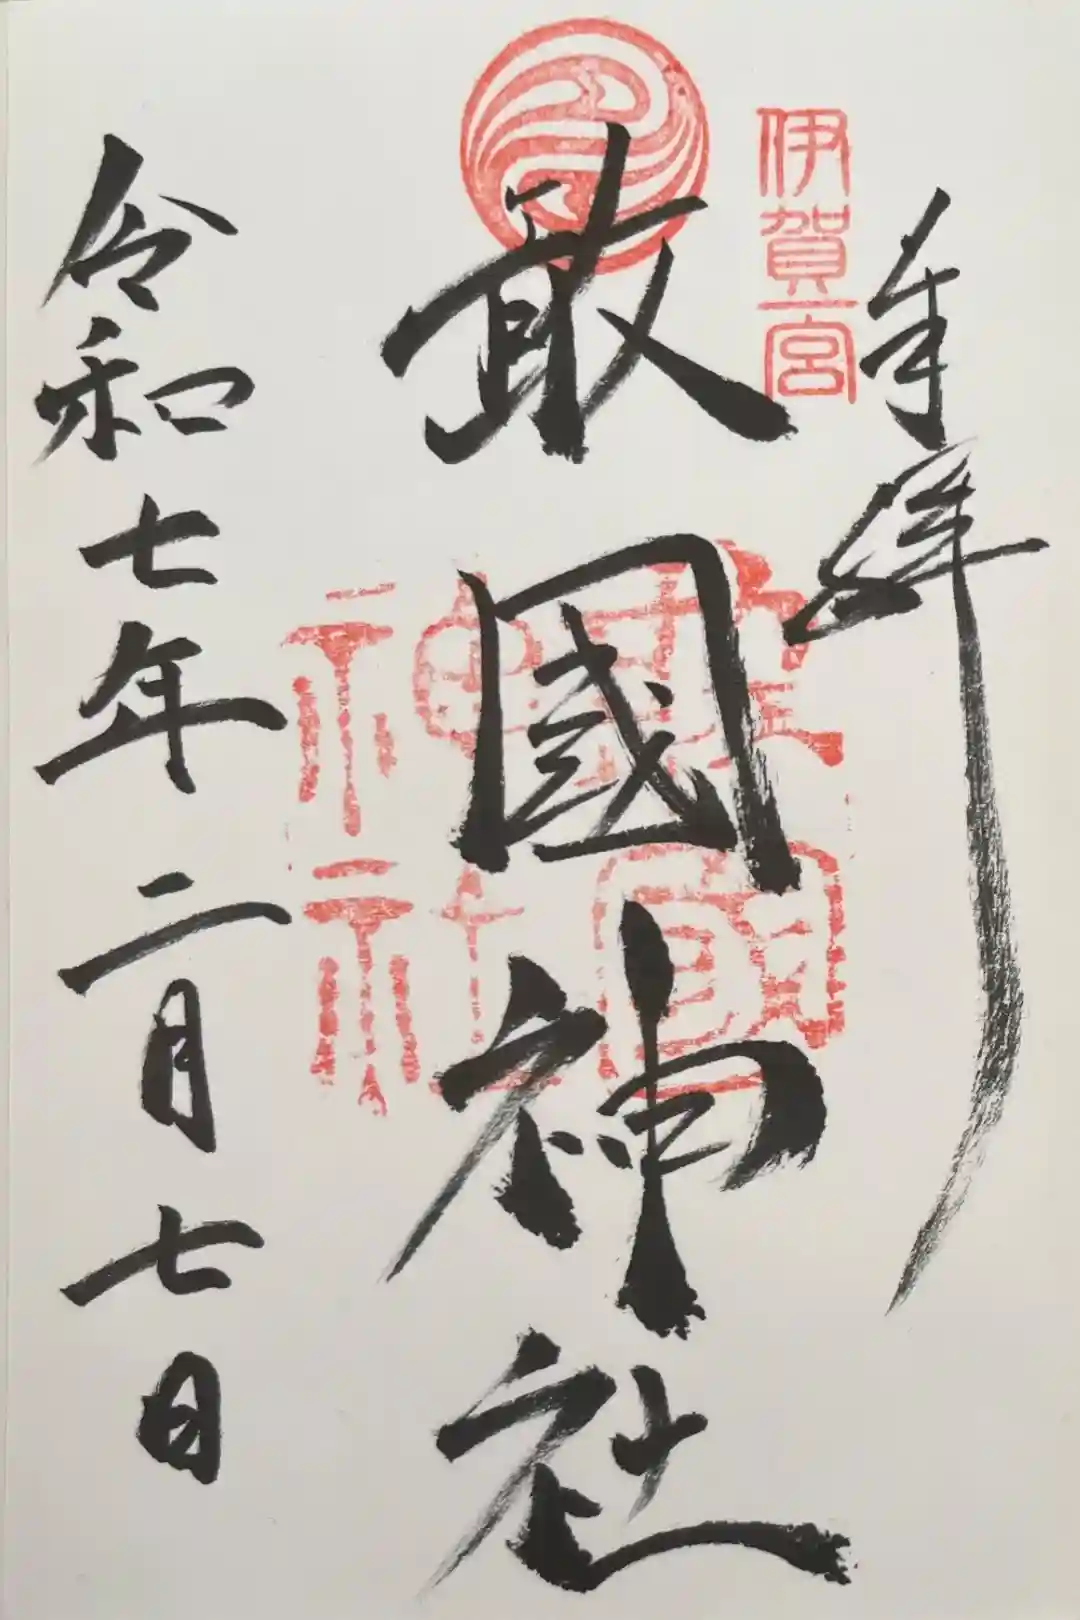 奉拝
伊賀一宮
敢國神社
敢國神社
令和七年二月七日